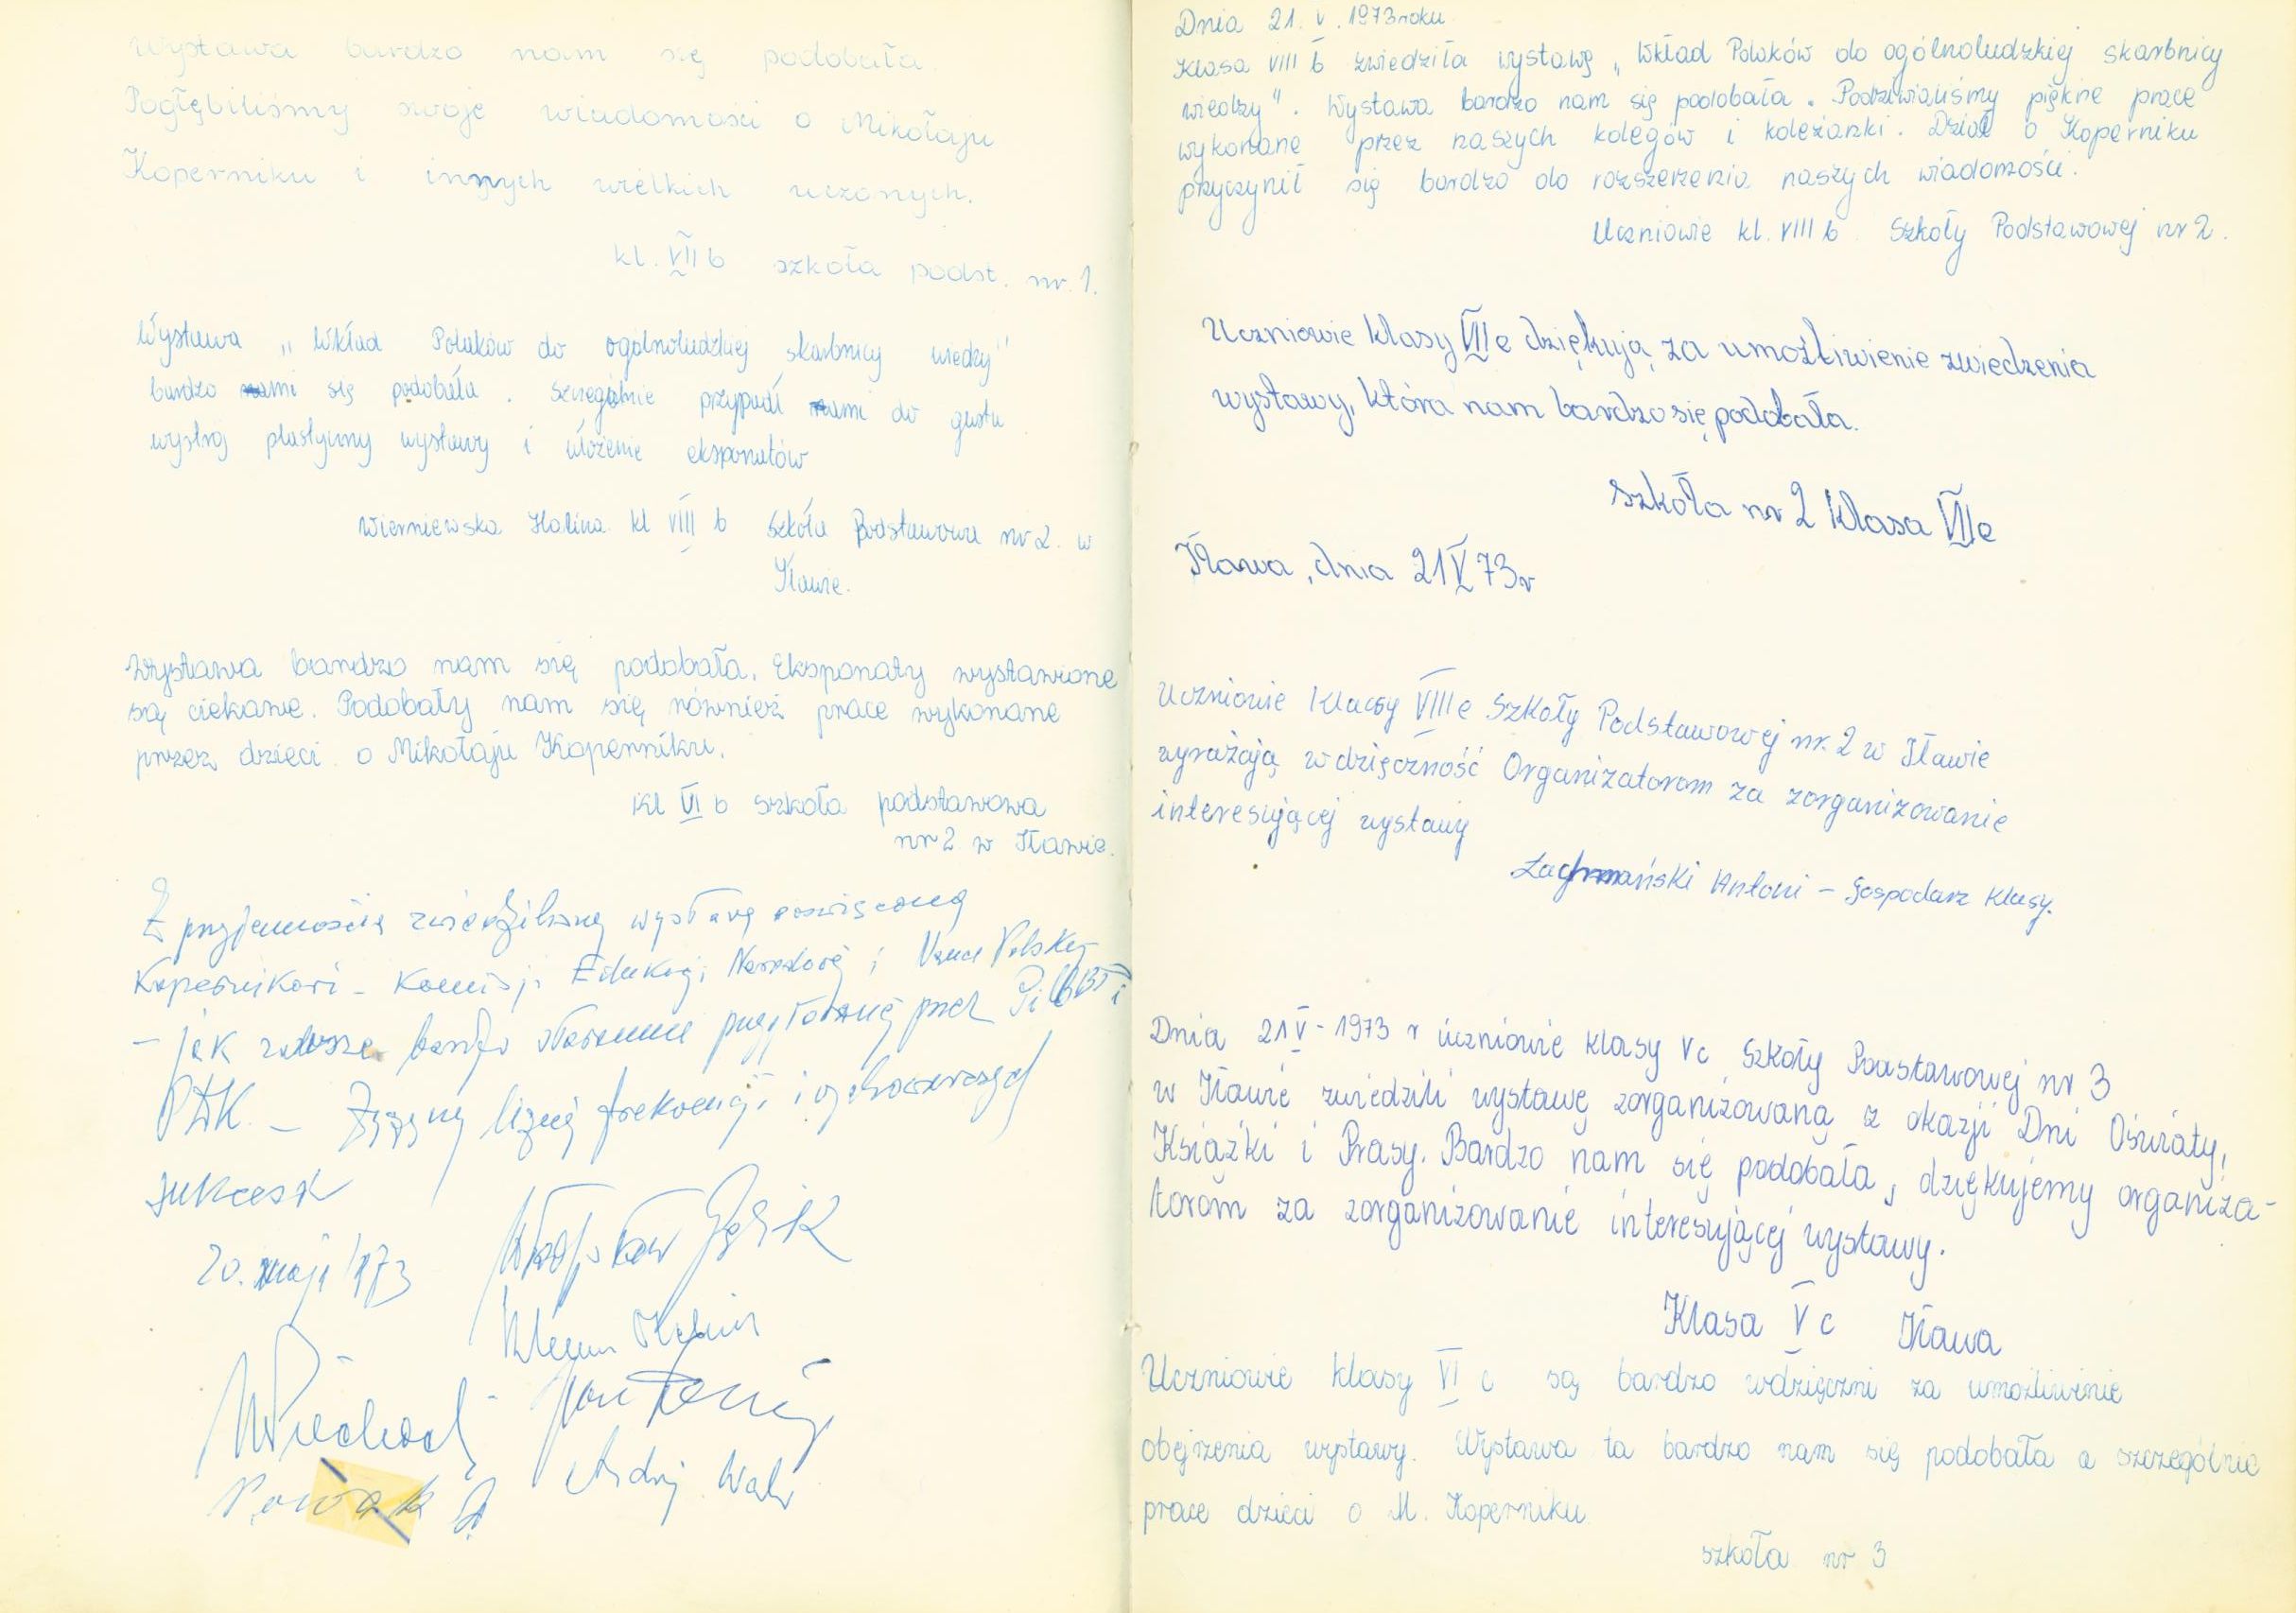 Wystawa bardzo nam się podobała.
Pogłębiliśmy swoje wiadomości o Mikołaju
Koperniku i innych wielkich uczonych.
kl. VII b szkoła podst. nr. 1.
Wystawa „Wkład Polaków do ogólnoludzkiej skarbnicy wiedzy"
bardzo mi się podobała. Szczególnie przypadł mi do gustu
wystrój plastyczny wystawy i ułożenie eksponatów
Wierniewska Halina kl VIII b Szkoła Podstawowa nr 2. w
Iławie.
Wystawa bardzo nam się podobała. Eksponaty wystawione
są ciekawe. Podobały nam się również prace wykonane
przez dzieci o Mikołaju Koperniku.
Kl VI b szkoła podstawowa
nr 2 w Iławie.
Z przyjemnością zwiedziliśmy wystawę poświęconą
Kopernikowi – Komisji Edukacji Narodowej i Nauce Polskiej
– jak zawsze bardzo starannie przygotowaną przez PiMBP i
PTTK. – Życzymy licznej frekwencji i wychowawczych
sukcesów
20. maja 1973
Władysław
Jan
Nowak
Dnia 21. V. 1973 roku
Klasa VIII b zwiedziła wystawę „Wkład Polaków do ogólnoludzkiej skarbnicy
wiedzy". Wystawa bardzo nam się podobała. Podziwialiśmy piękne prace
wykonane przez naszych kolegów i koleżanki. Dział o Koperniku
przyczynił się bardzo do rozszerzenia naszych wiadomości.
Uczniowie kl. VIII b Szkoły Podstawowej nr 2.
Uczniowie klasy VII e dziękują za umożliwienie zwiedzenia
wystawy, która nam bardzo się podobała.
Szkoła nr 2 klasa VII e
Iława, dnia 21 V 73 r
Uczniowie klasy VIII e Szkoły Podstawowej nr. 2 w Iławie
wyrażają wdzięczność Organizatorom za zorganizowanie
interesującej wystawy
Antoni – Gospodarz klasy.
Dnia 21 V - 1973 r uczniowie klasy V c Szkoły Podstawowej nr 3
w Iławie zwiedzili wystawę zorganizowaną z okazji Dni Oświaty,
Książki i Prasy. Bardzo nam się podobała, dziękujemy organiza-
torom za zorganizowanie interesującej wystawy.
Klasa V c Iława
Uczniowie klasy VI c są bardzo wdzięczni za umożliwienie
obejrzenia wystawy. Wystawa ta bardzo nam się podobała a szczególnie
prace dzieci o M. Koperniku
szkoła nr 3